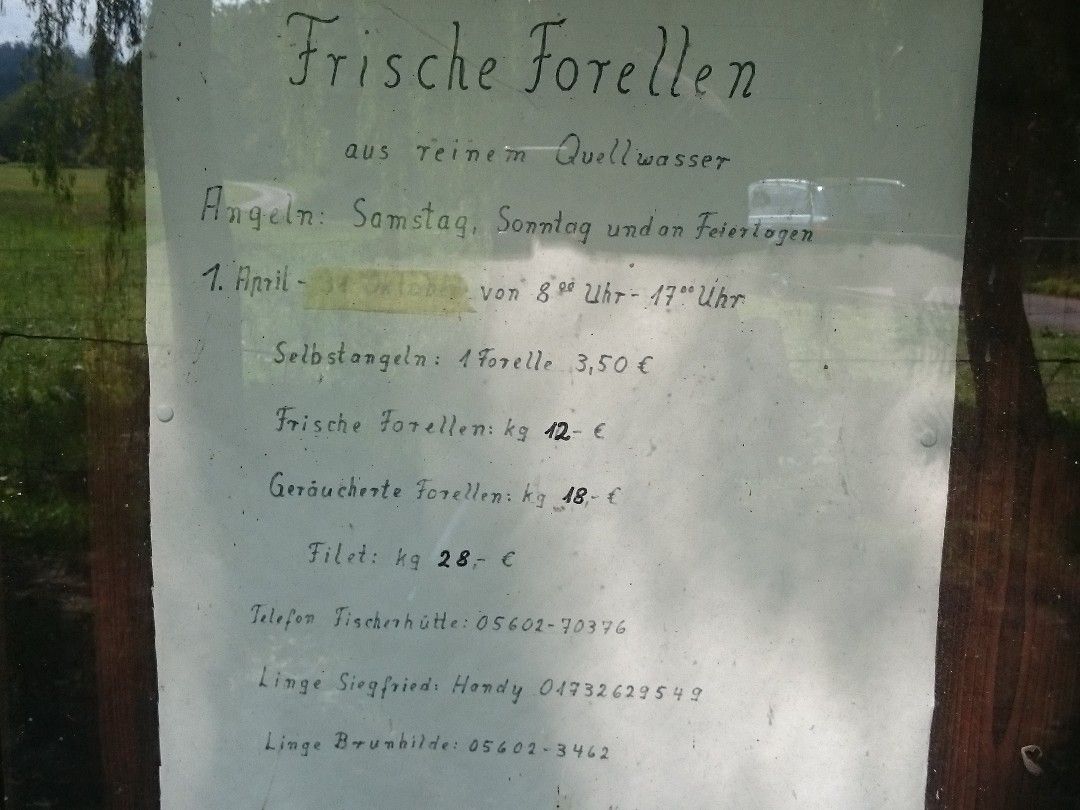 Frische Forellen
aus reinem Quellwasser
Angeln: Samstag, Sonntag und an Feiertagen
1. April - 31 Oktober von 8⁰⁰ Uhr - 17⁰⁰ Uhr
Selbstangeln: 1 Forelle 3,50 €
Frische Forellen: kg 12- €
Geräucherte Forellen: kg 18,- €
Filet: kg 28,- €
Telefon Fischerhütte: 05602-70376
Linge Siegfried: Handy 01732629549
Linge Brunhilde: 05602-3462